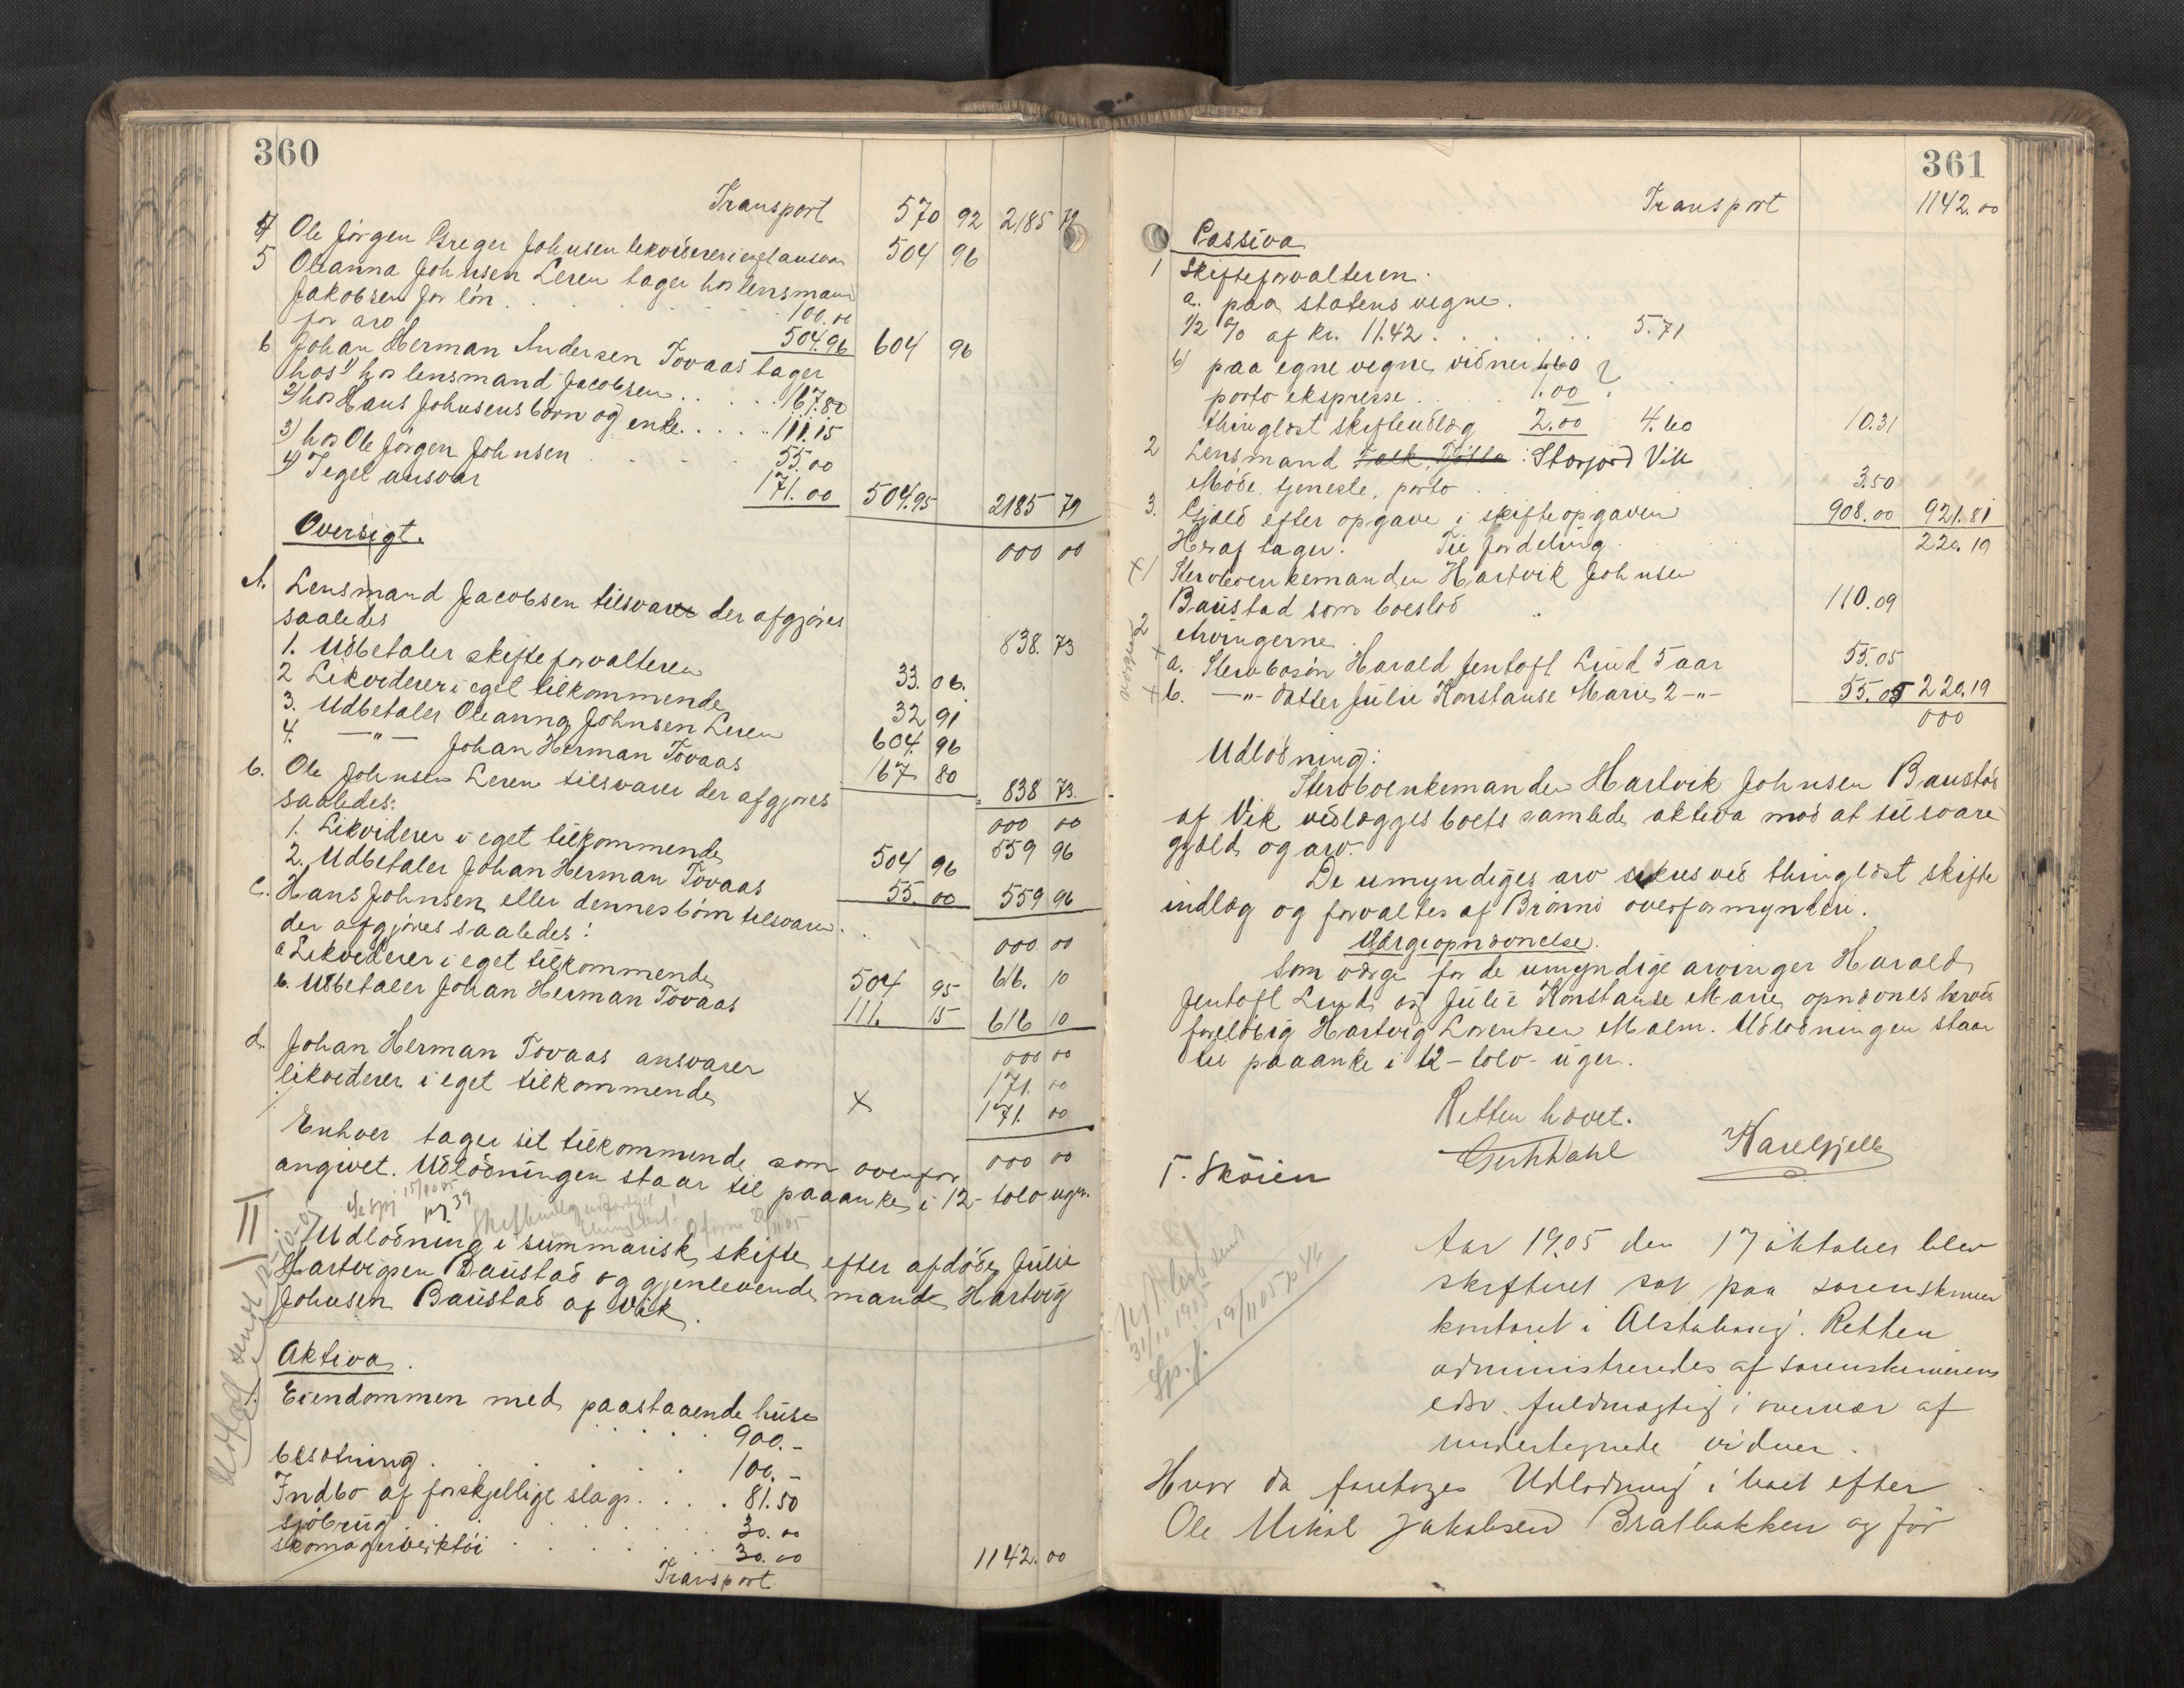 360
Transport 570 92 2185 79
4 Ole Jørgen Greger Johnsen likviderer i eget ansvar 504 96
5 Oleanna Johnsen Leren tager hos lensmand
Jakobsen for løn . . . 100.00
for arv 504.96 604 96
6 Johan Herman Andersen Tovaas tager
hos 1) hos lensmand Jacobsen . . . . . 167.80
2) hos Hans Johnsens børn og enke . . . . 111.15
3) hos Ole Jørgen Johnsen . . . 55.00
4) I eget ansvar 171.00 504.95 2185 79
Oversigt. 000 00
A. Lensmand Jacobsen tilsvarer der afgjøres
saaledes 838. 73
1. Udbetaler skifteforvalteren 33. 06.
2 Likviderer i eget tilkommende 32 91
3. Udbetaler Oleanna Johnsen Leren 604. 96
4. —"— Johan Herman Tovaas 167 80 838 73.
000 00
b. Ole Johnsen Leren tilsvarer der afgjøres
saaledes: 559 96
1. Likviderer i eget tilkommende 504 96
2. Udbetaler Johan Herman Tovaas 55. 00 559 96
000. 00
c. Hans Johnsen eller dennes børn tilsvarer
der afgjøres saaledes: 616. 10
a Likviderer i eget tilkommende 504 95
b. Udbetaler Johan Herman Tovaas 111. 15 616 10
000 00
d. Johan Herman Tovaas ansvarer 171. 00
likviderer i eget tilkommende x 171. 00
000 00
Enhver tager sit tilkommende som ovenfor
angivet. Udlodningen staar til paaanke i 12- tolv uger.
II Udlodning i summarisk skifte efter afdøde Julie
Hartvigsen Baustad og gjenlevende mand Hartvig
Johnsen Baustad af Vik.
Aktiva.
1. Eiendommen med paastaaende huse
. . . . . 900.-
besætning . . . . . 100.-
Indbo af forskjelligt slags . . . . 81.50
sjøbrug . . . . . 30.00
skomagerverktøi . . . 30.00 1142.00
Transport
361
Transport 1142.00
Passiva
1 Skifteforvalteren.
a. paa statens vegne.
1/2 % af kr. 11.42 . . . . . . 5.71
b) paa egne vegne, vidner 1.60
porto ekspresse . . . . 1.00
thinglæst skifteudlæg 2.00 4.60 10.31
2 Lensmand Falk, Tjøtta : Storjord Vik
Møde, tjeneste, porto 3.50
3. Gjæld efter opgave i skifteopgaven 908.00 921.81
Til fordeling 220.19
Heraf tager:
x 1 Stervboenkemanden Hartvik Johnsen
Baustad som boeslod 110.09
2 Arvingerne
x a. Stervbosøn Harald Jentoft Lind 5 aar 55.05
x b. —"— datter Julie Konstanse Marie 2 —"— 55.05 220.19
000
Udlodning:
Stervboenkemanden Hartvik Johnsen Baustad
af Vik udlægges boets samlede aktiva mod at tilsvare
gjæld og arv.
De umyndiges arv sikres ved thinglæst skifte
indlæg og forvaltes af Brønnø overformynderi.
Værgeopnævnelse.
Som værge for de umyndige arvinger Harald
Jentoft Lind og Julie Konstanse Marie opnævnes herved
foreløbig Hartvig Lorentsen Malm. Udlodningen staar
til paaanke i 12- tolv- uger.
Retten hævet.
T. Skøien
Aar 1905 den 17 oktober blev
skifteret sat paa sorenskriver
kontoret i Alstahoug. Retten
administreredes af sorenskriverens
edsv. fuldmægtig i overvær af
undertegnede vidner.
Hvor da foretoges Udlodning i boet efter
Ole Mikal Jakobsen Bratbakken og før